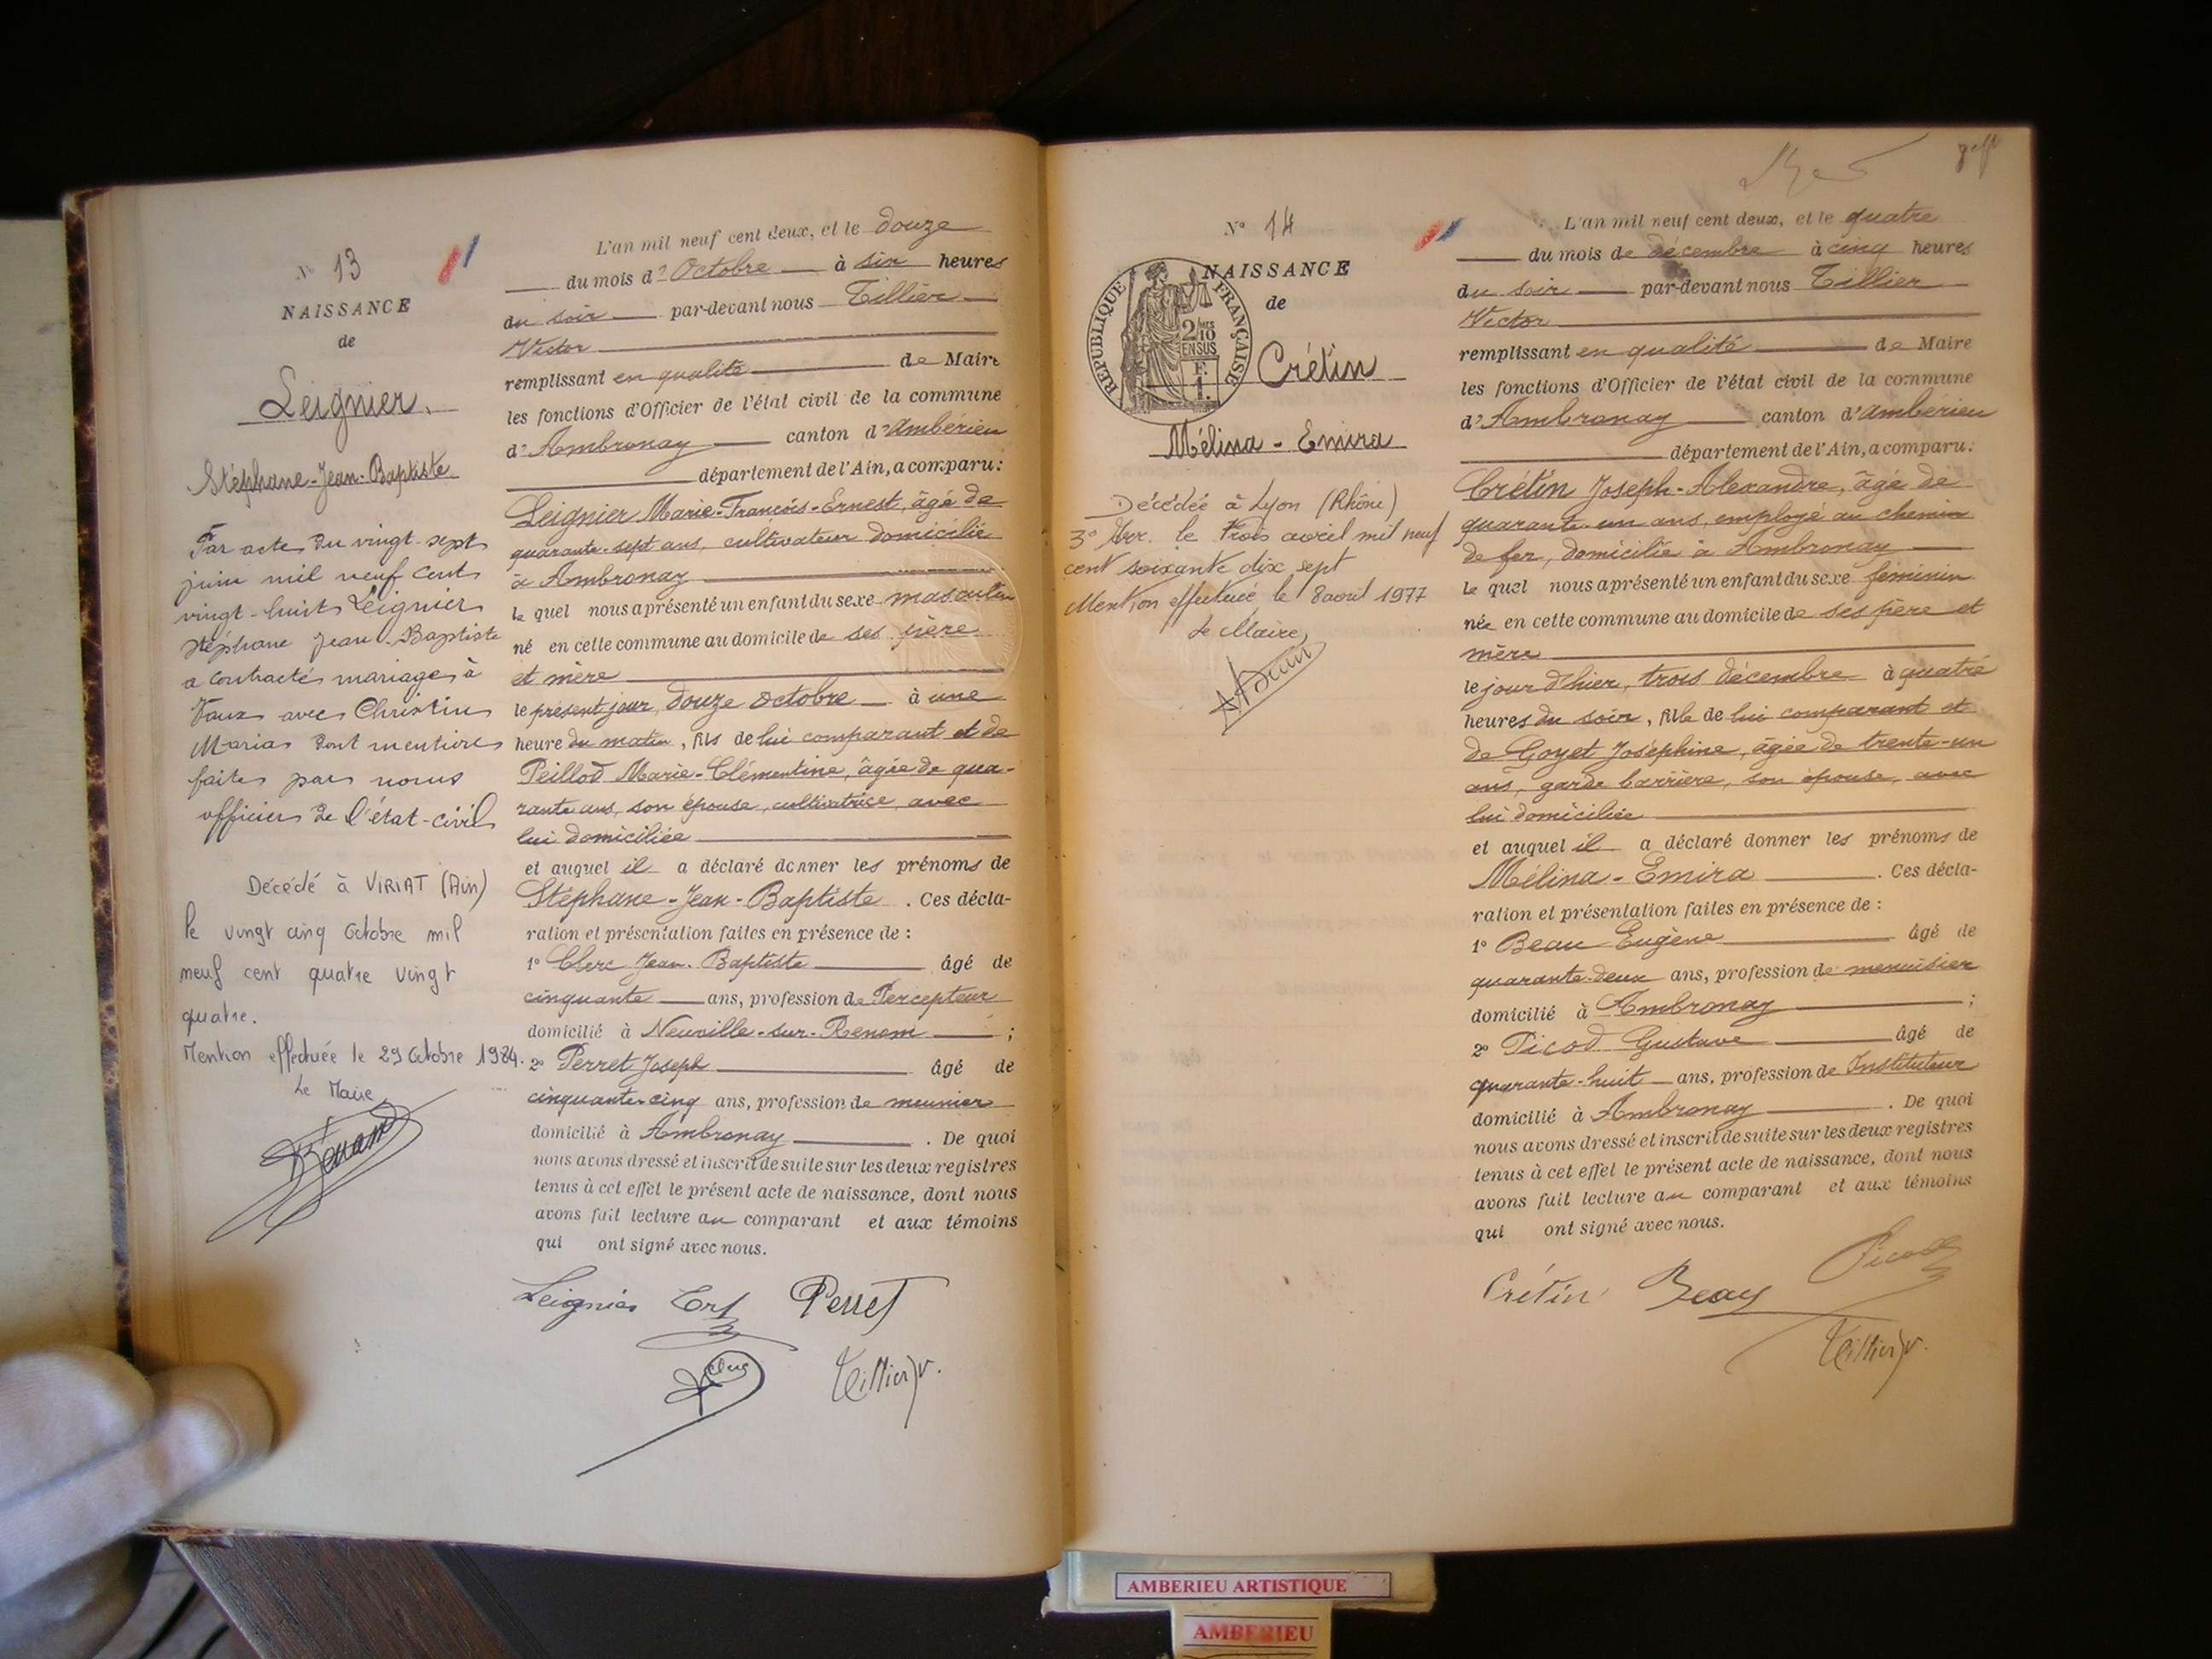 N° 13
NAISSANCE
de
Leignier.
Stéphane-Jean-Baptiste
Par acte du vingt-sept
juin mil neuf cent
vingt-huit Leignier
Stéphane Jean-Baptiste
a contracté mariage à
Vaux avec Christin
Maria dont mention
faite par nous
officier de l'état-civil
Décédé à VIRIAT (Ain)
le vingt cinq Octobre mil
neuf cent quatre vingt
quatre.
Mention effectuée le 29 Octobre 1984.
Le Maire,
L'an mil neuf cent deux, et le douze
du mois d'Octobre à six heures
du soir par-devant nous Tillier
Victor
remplissant en qualité de Maire
les fonctions d'Officier de l'état civil de la commune
d'Ambronay canton d'Ambérieu
département de l'Ain, a comparu:
Leignier Marie-François-Ernest, âgé de
quarante-sept ans, cultivateur domicilié
à Ambronay
le quel nous a présenté un enfant du sexe masculin
né en cette commune au domicile de ses père
et mère
le présent jour, douze octobre à une
heure du matin, fils de lui comparant et de
Peillod Marie-Clémentine, âgée de qua-
rante ans, son épouse, cultivatrice, avec
lui domiciliée
et auquel il a déclaré donner les prénoms de
Stéphane-Jean-Baptiste. Ces décla-
ration et présentation faites en présence de :
1° Clerc Jean-Baptiste âgé de
cinquante ans, profession de Percepteur
domicilié à Neuville-sur-Renom ;
2° Perret Joseph âgé de
cinquante-cinq ans, profession de meunier
domicilié à Ambronay. De quoi
nous avons dressé et inscrit de suite sur les deux registres
tenus à cet effet le présent acte de naissance, dont nous
avons fait lecture au comparant et aux témoins
qui ont signé avec nous.
Leignier Ert Perret
Clerc Tillier V.
N° 14
NAISSANCE
de
REPUBLIQUE FRANÇAISE
2/10 EN SUS
F.
1.
Crétin
Mélina-Emira
Décédée à Lyon (Rhône)
3° Arr. le trois avril mil neuf
cent soixante dix sept
Mention effectuée le 8 avril 1977
Le Maire,
L'an mil neuf cent deux, et le quatre
du mois de décembre à cinq heures
du soir par-devant nous Tillier
Victor
remplissant en qualité de Maire
les fonctions d'Officier de l'état civil de la commune
d'Ambronay canton d'Ambérieu
département de l'Ain, a comparu:
Crétin Joseph-Alexandre, âgé de
quarante-un ans, employé au chemin
de fer, domicilié à Ambronay
le quel nous a présenté un enfant du sexe féminin
née en cette commune au domicile de ses père et
mère
le jour d'hier, trois décembre à quatre
heures du soir, fille de lui comparant et
de Goyet Joséphine, âgée de trente-un
ans, garde barrière, son épouse, avec
lui domiciliée
et auquel il a déclaré donner les prénoms de
Mélina-Emira. Ces décla-
ration et présentation faites en présence de :
1° Beau Eugène âgé de
quarante-deux ans, profession de menuisier
domicilié à Ambronay ;
2° Picod Gustave âgé de
quarante-huit ans, profession de Instituteur
domicilié à Ambronay. De quoi
nous avons dressé et inscrit de suite sur les deux registres
tenus à cet effet le présent acte de naissance, dont nous
avons fait lecture au comparant et aux témoins
qui ont signé avec nous.
Crétin Beau Picod
Tillier V.
AMBERIEU ARTISTIQUE
AMBERIEU